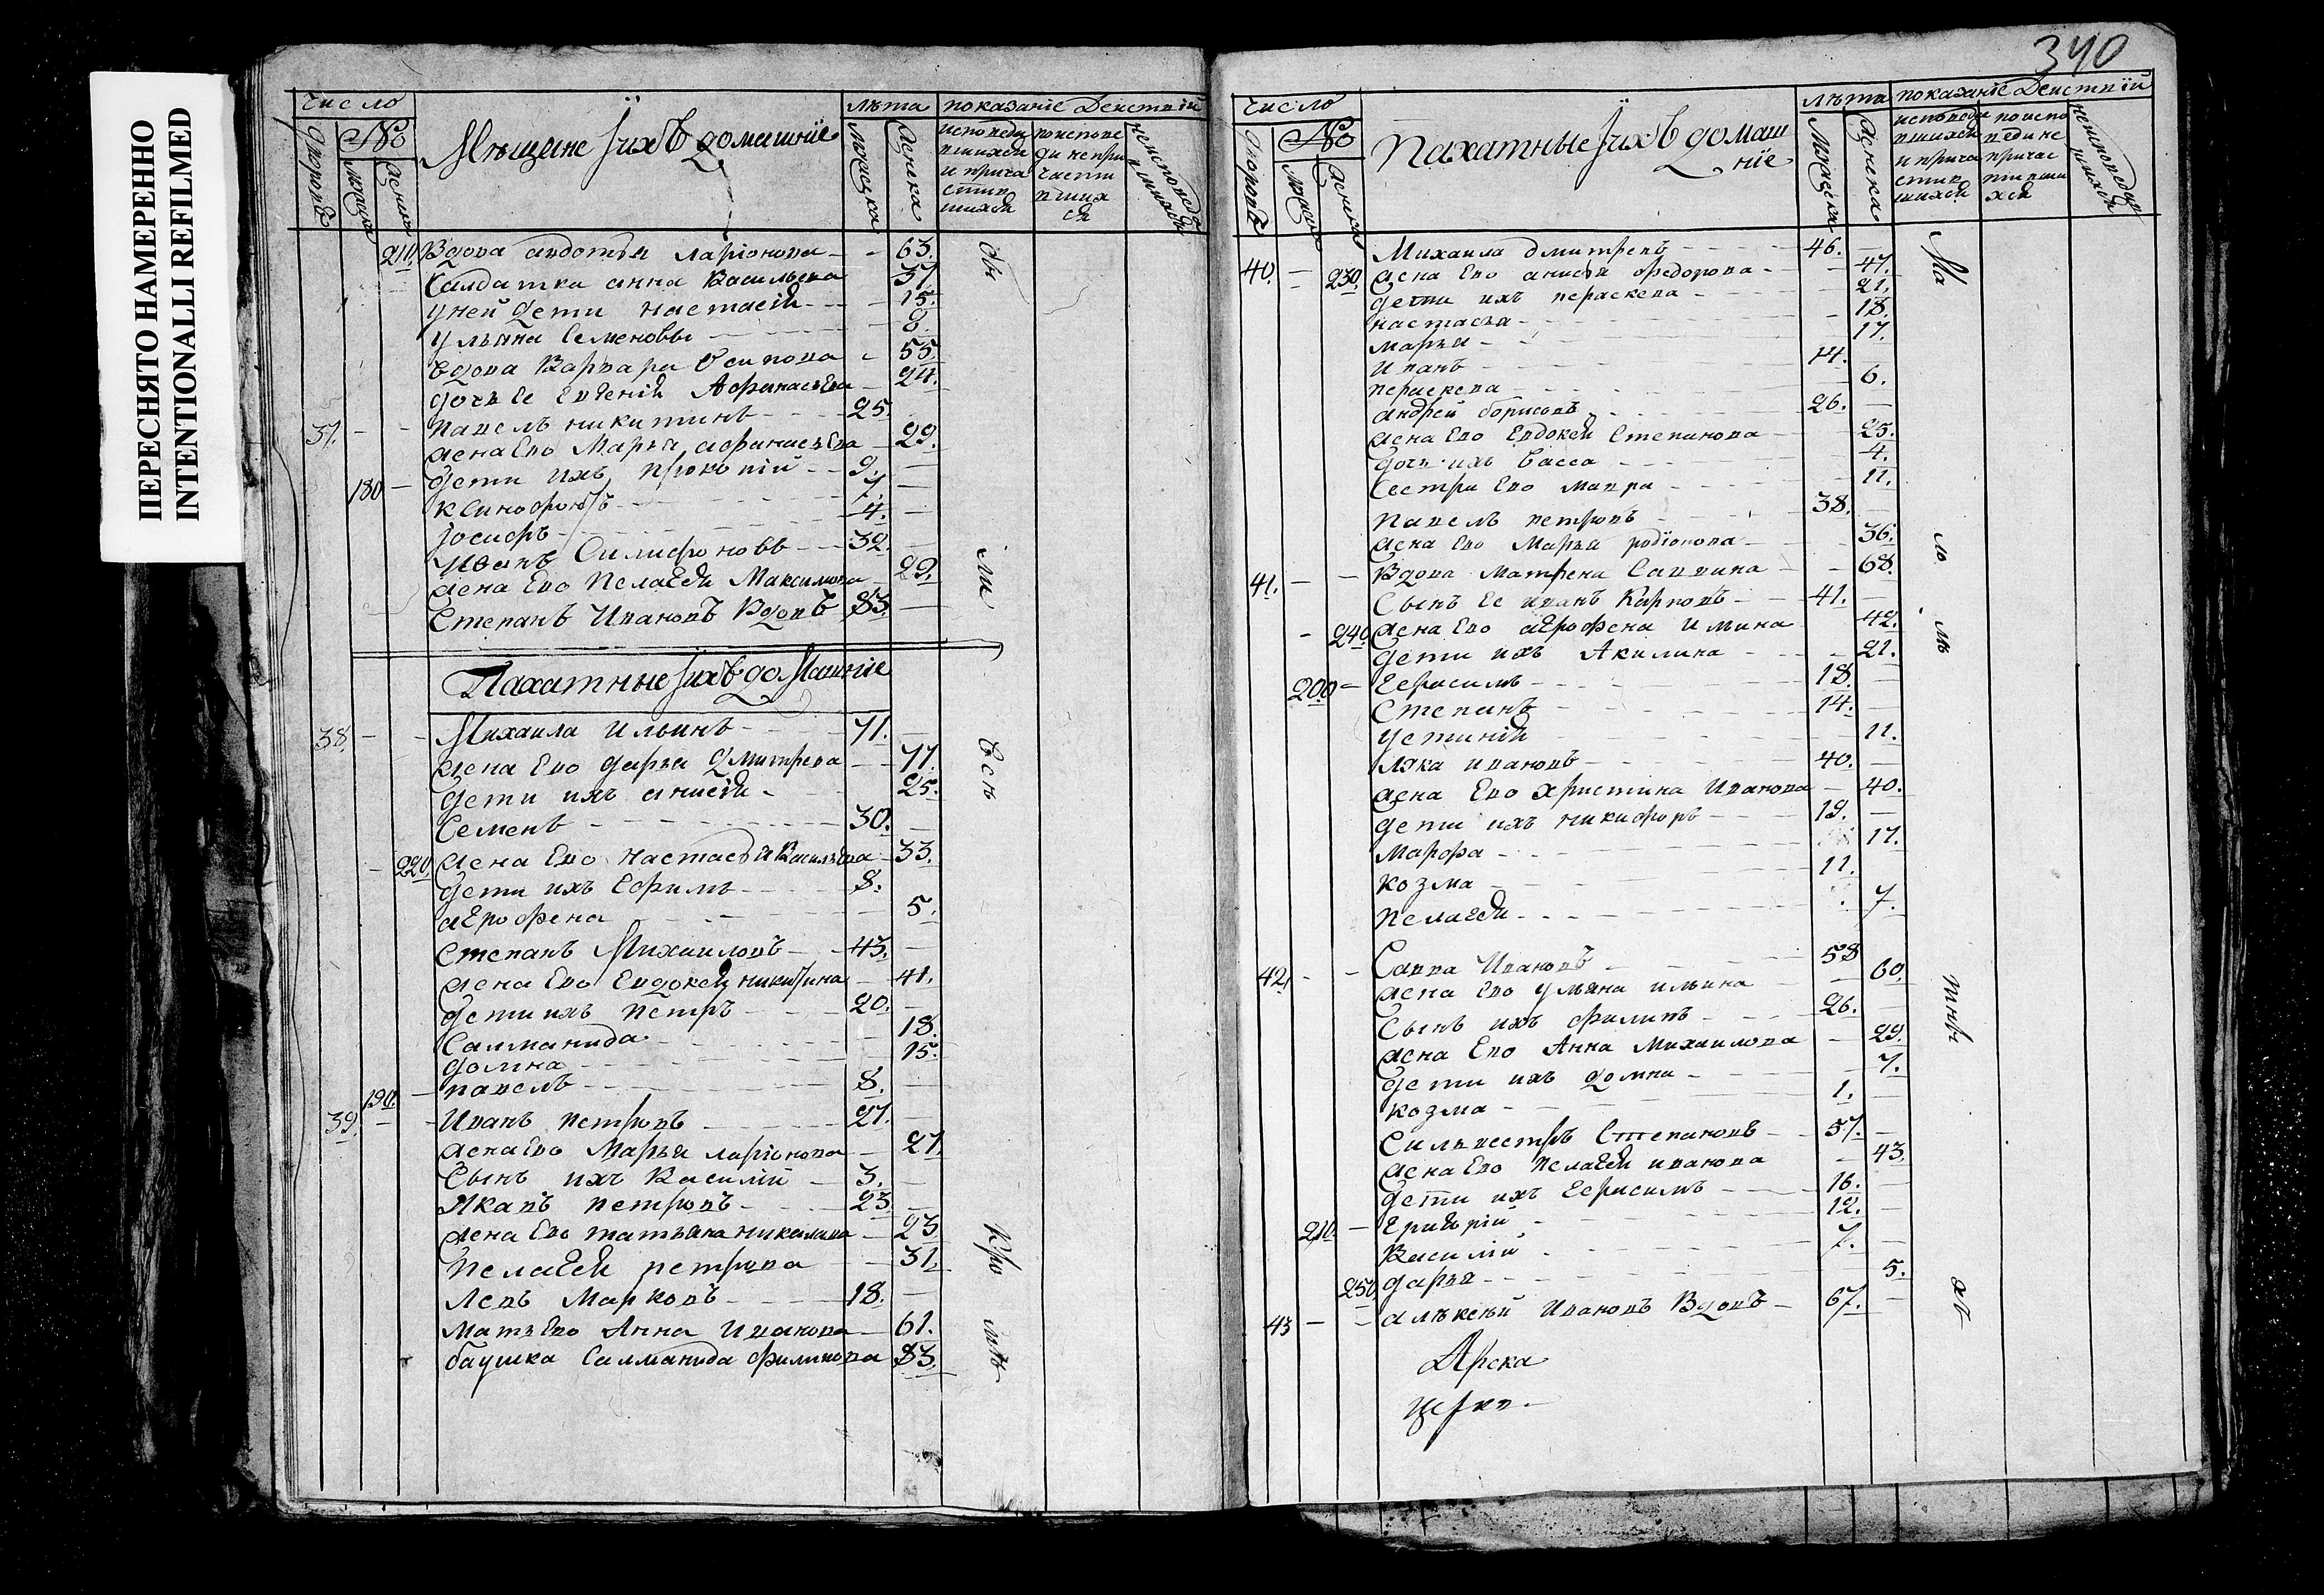 ПЕРЕСНЯТО НАМЕРЕННО
INTENTIONALLI REFILMED
число
лѣта показанїе Действїй
дворовъ
№
мужеска
женска
Мѣщане јихЪ домашнїе
мужеска
женска
исповеда
вшихся
и прича
стив
шихся
поиспове
ди непри
части
вших
ся
211 Вдова авдотья ларїонова - - 63.
Салдатка анна Васильева 57
у ней дети настасїя - - 15.
ульяна Семеновы - 8.
вдова Варвара Осипова - 55
дочь Ее Евгенїя Афанасьева - 24.
37. - - павелъ никитинъ - - 25.
жена Ево Марья афанасьева - 29.
180 - дети ихъ прокопїй - - 9. -
ксинофонтъ - 7. -
јосифъ - 4. -
Иванъ Филифоновъ - - 32. -
жена Ево Пелагея Максимова - 29.
Степанъ Ивановъ Вдовъ 83 -
Пахатные јихЪ домашнїе
38. - - Михаила Ильинъ - 71. -
жена Ево дарья Дмитрева - - 77.
дети ихъ анисїя - 25.
Семенъ - 30. -
- 220. жена Ево настасья Васильева - 33.
дети ихъ Ефимъ - - 8.
агрофена - 5.
Степанъ Михаиловъ - 43. -
жена Ево Евдокея никитина - 41.
дети ихъ петръ - 20. -
Саламанида - 18.
домна - 15.
190. - павелъ - 8. -
39. - - Иванъ петровъ - 27. -
жена Ево Марья ларїонова - 27.
Сынъ ихъ Василїй - 3. -
Якавъ петровъ - 23 -
жена Ево татьяна николаева - 23
Пелагея петрова - - 31.
Левъ Марковъ - 18. -
мать Ево Анна Иванова - 61.
баушка Саламанида филипова 83.
Сы
ми
всѣ
Кро
мѣ
340
число
лѣта показанїе Действїй
дворовъ
№
мужеска
женска
Пахатные јихЪ домаш
нїе
мужеска
женска
исповеда
вшихся
и прича
стив
шихся
по испо
веди не
причас
тивши
хся
Михаила дмитревъ - - 46. -
40. - 230. жена Ево анисья федорова - - 47.
дети ихъ пераскева - 21.
настасья - 18.
марья - 17.
Иванъ - 14. -
пераскева - 6.
андрей борисовъ - 26. -
жена Ево Евдокея Степанова - 25.
дочь ихъ васса - 4.
Сестра Ево мавра - 11.
павелъ петровъ - 38. -
жена Ево Марья родїонова - 36.
41. - - Вдова Матрена Саввина - - 68.
Сынъ Ее иванъ Карповъ - 41. -
- 240. жена Ево агрофена Ильина 42.
дети ихъ Акилина - - 21.
200 - Герасимъ - 18. -
Степанъ - 14. -
устинїя - 11.
лука ивановъ - 40. -
жена Ево христина Иванова - 40.
дети ихъ никифоръ - 19. -
Марфа - 17.
козма - 11. -
пелагея - 7.
42. - - Савва Ивановъ - 58
жена Ево ульяна ильина - - 60.
Сынъ ихъ филипъ - 26. -
жена Ево Анна Михаилова - 29.
дети ихъ домна - 7.
козма - 1. -
Сильвестръ Степановъ - 57. -
жена Ево Пелагея иванова - 43.
дети ихъ Герасимъ - 16. -
210. - григорїй - 12. -
Василїй - 7. -
250. дарья - 5.
43 - - алѣксѣй Ивановъ Вдовъ - 67. -
Ма
ло
лѣ
тнъ
хъ